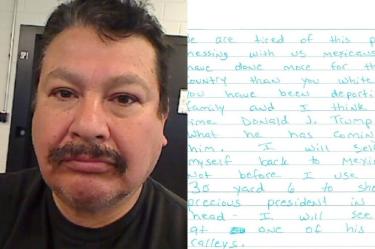 e are tired of this p
messing with us mexicans
have done more for th
country than you white
you have been deporti
family and I think
ime Donald J. Trump
what he has coming
him. I will self
myself back to Mexic
Not before I use
30 yard 6 to sho
precious president in
head - I will see
at one of his
ralleys.